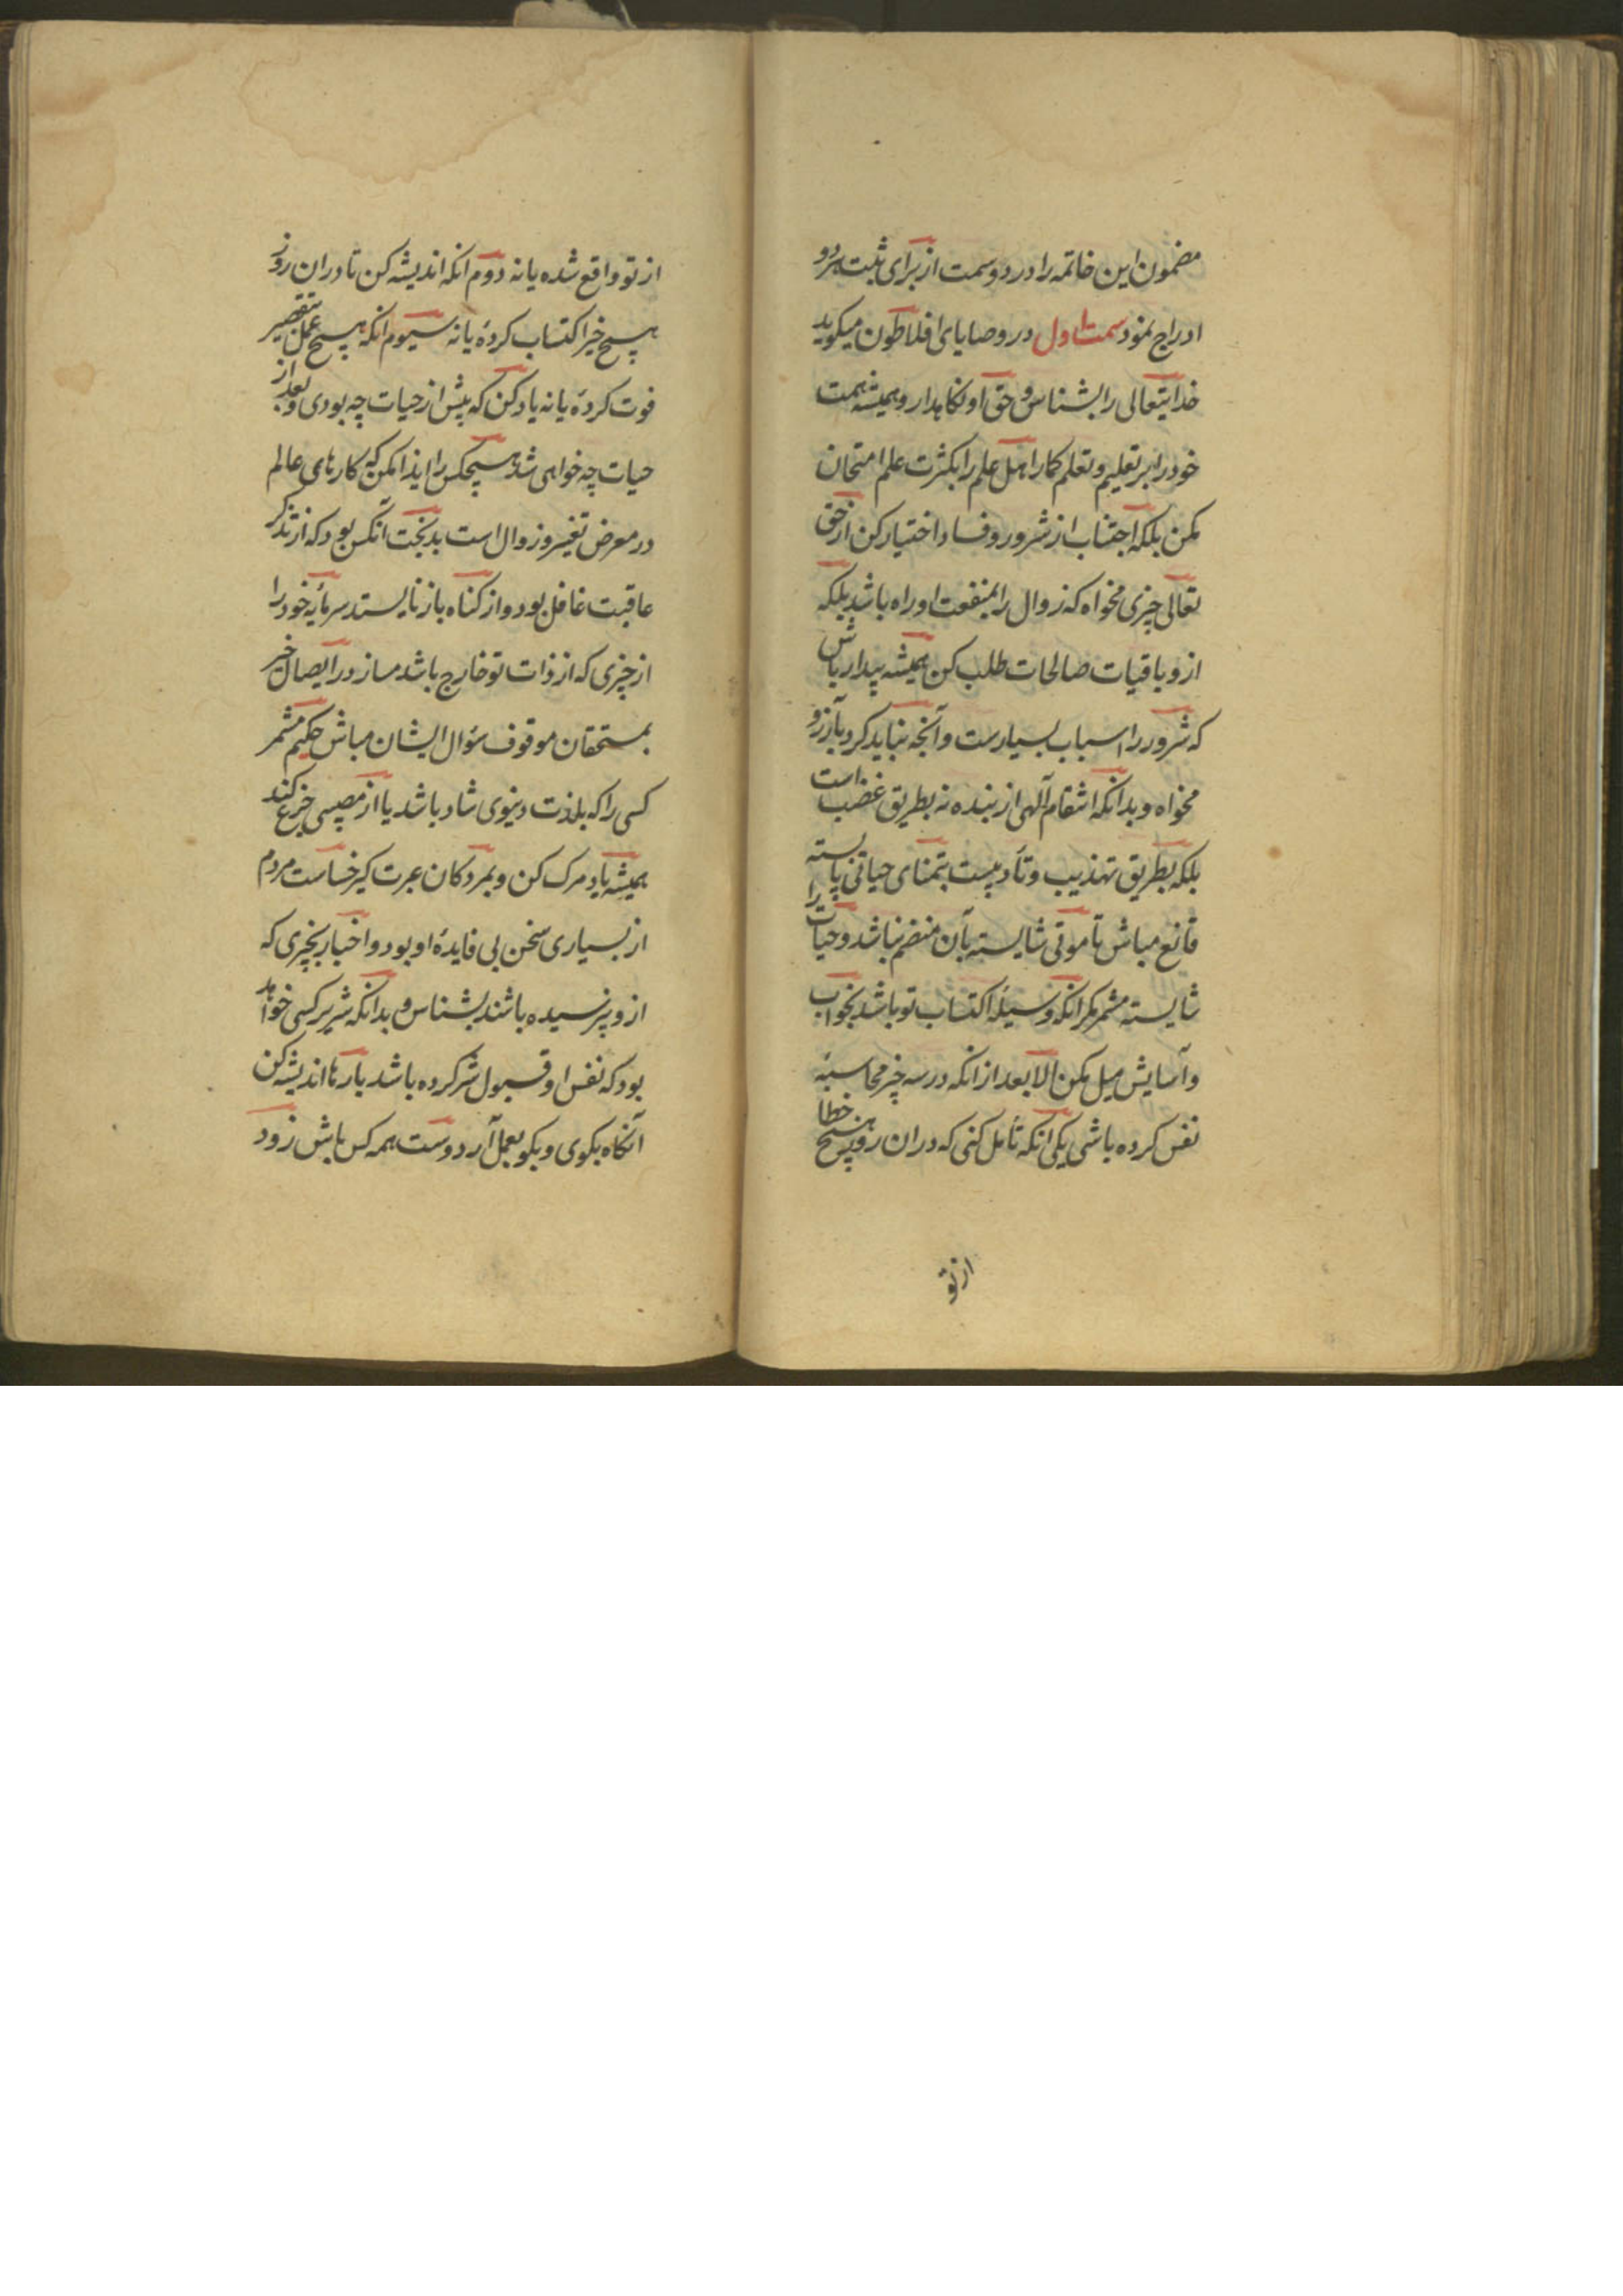 مضمون این خاتمه را در دو سمت از برای ثبت هر دو
ادراج نمود سمت اول در وصایای افلاطون میکوید
خدایتعالی را بشناس و حق او نکاهدار و همیشه همت
خود را بر تعلیم و تعلم کمار اهل علم را بکثرت علم امتحان
مکن بلکه اجتناب از شرور و فساد اختیار کن از حق
تعالی چیزی مخواه که زوال را بمنفعت او راه باشد بلکه
ازو باقیات صالحات طلب کن همیشه بیدار باش
که شرور را اسباب بسیارست و آنچه نباید کرد بآرزو
مخواه و بدانکه انتقام آلهی از بنده نه بطریق غضب است
بلکه بطریق تهذیب و تأدیبست بتمنای حیاتی بایسته
قانع مباش تا موتی شایسته بآن منضم نباشد و حیات را
شایسته مشمر مکر انکه وسیلهٔ اکتساب تو باشد بخواب
و آسایش میل مکن الا بعد از انکه در سه چیز محاسبهٔ
نفس کرده باشی یکی انکه تأمل کنی که دران روز هیچ خطا
از تو
از تو واقع شده یا نه دوم انکه اندیشه کن تا دران روز
هیچ خیر اکتساب کردهٔ یا نه سیوم انکه هیچ عمل بتقصیر
فوت کردهٔ یا نه یاد کن که پیش از حیات چه بودی و بعد از
حیات چه خواهی شد هیچکس را ایذا مکن که کارهای عالم
در معرض تغیر و زوال است بدبخت آنکس بود که از تذکر
عاقبت غافل بود و از کناه باز نایستد سرمایهٔ خود را
از چیزی که از ذات تو خارج باشد مساز در ایصال خیر
بمستحقان موقوف سؤال ایشان مباش حکیم مشمر
کسی را که بلذت دنیوی شاد باشد یا از مصیبتی جزع کند
همیشه یاد مرک کن و بمردکان عبرت کیر خساست مردم
از بسیاری سخن بی فایدهٔ او بود و اخبار بچیزی که
ازو نپرسیده باشند بشناس و بدانکه شریر کسی خواهد
بود که نفس او قبول شر کرده باشد بارها اندیشه کن
آنکاه بکوی و بکو بعمل آر دوست همه کس باش زود